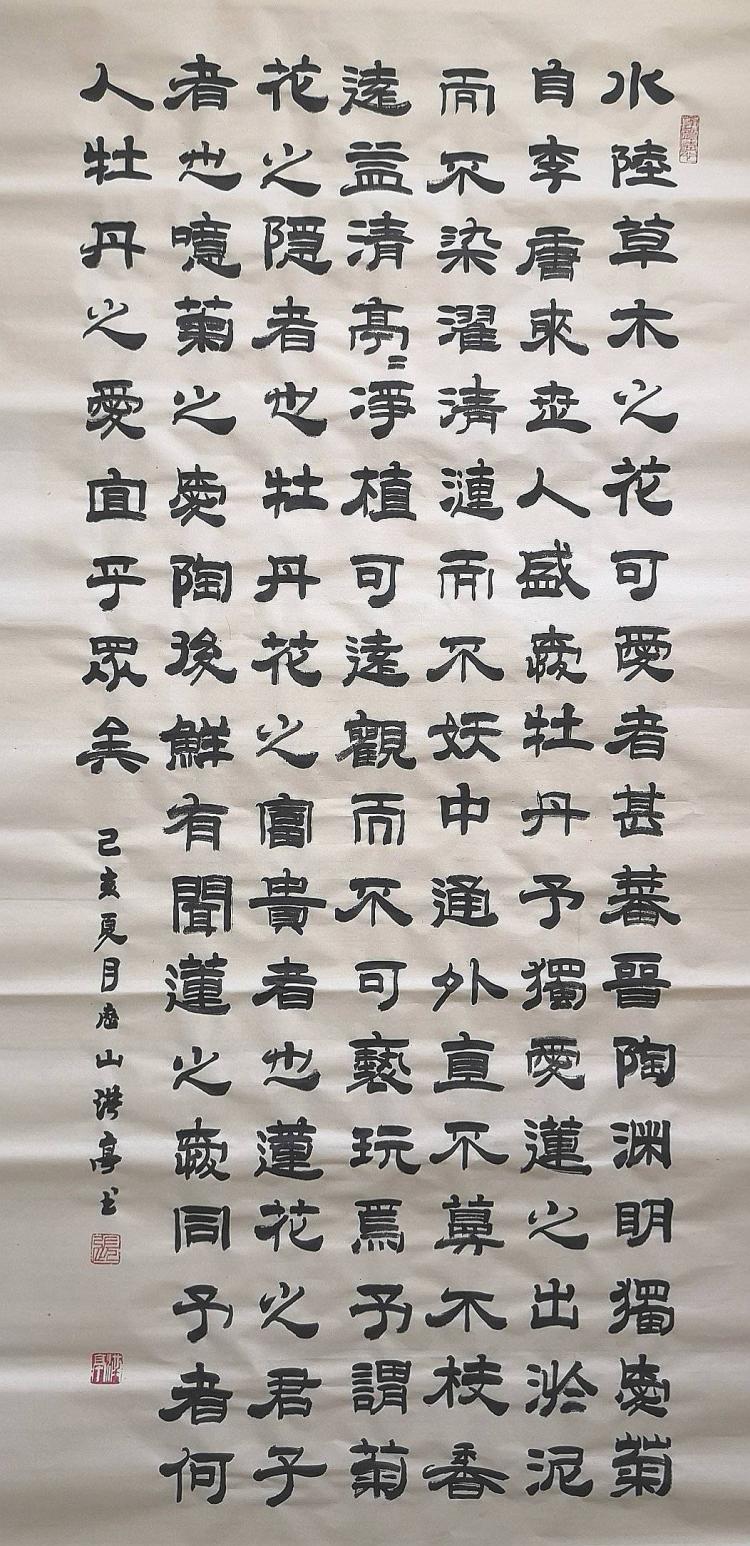 水陸草木之花可愛者甚蕃晉陶渊明獨愛菊
自李唐來世人盛愛牡丹予獨愛蓮之出淤泥
而不染濯清漣而不妖中通外直不蔓不枝香
遠益清亭〻淨植可遠觀而不可褻玩焉予謂菊
花之隱者也牡丹花之富貴者也蓮花之君子
者也噫菊之愛陶後鮮有聞蓮之愛同予者何
人牡丹之愛宜乎眾矣
己亥夏月歷山洪亭书